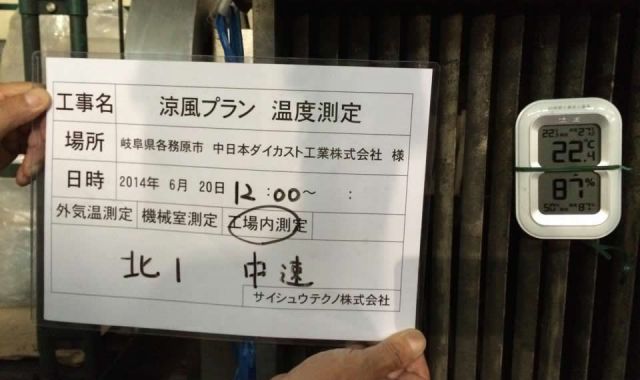 工事名 涼風プラン 温度測定
場所 岐阜県各務原市 中日本ダイカスト工業株式会社 様
日時 2014年 6月 20日 12:00～ :
外気温測定 機械室測定 工場内測定
北1 中速
サイシュウテクノ株式会社
22.4
87%